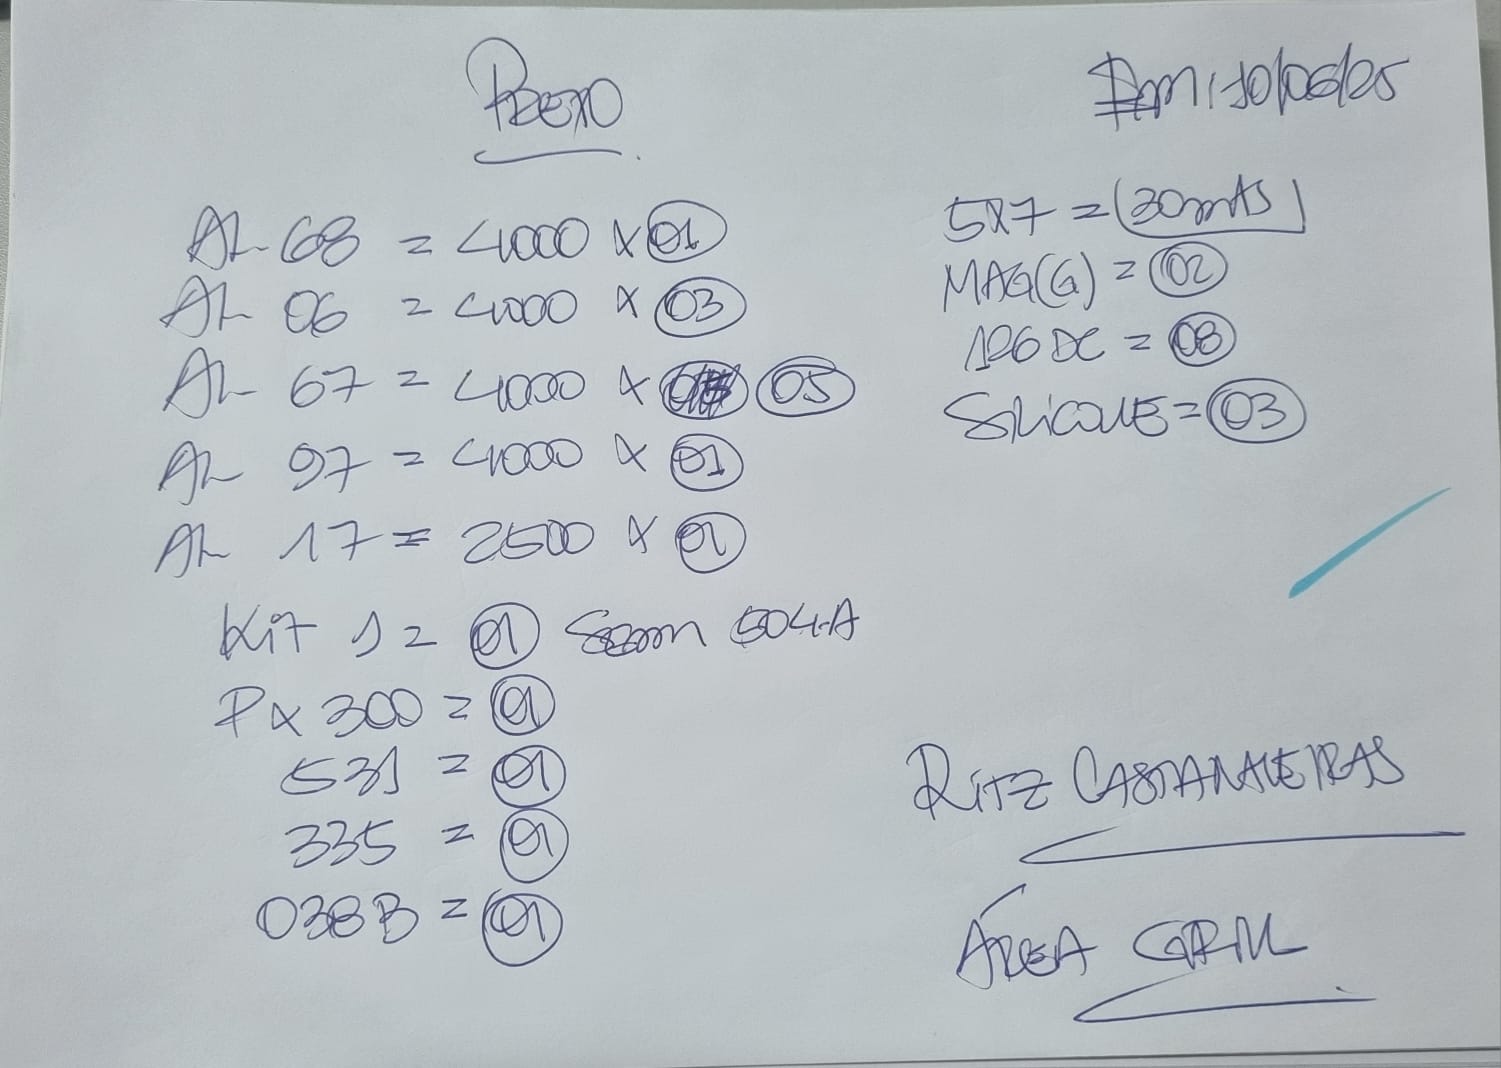 AL 68 = 4000 x 01
AL 06 = 4000 x 03
AL 67 = 4000 x 05
AL 97 = 4000 x 01
AL 17 = 2500 x 01
Kit 1 = 01 504-A
PX 300 = 01
531 = 01
335 = 01
038B = 01
5x7 = (30mts)
MAG(G) = 02
126 DC = 08
SiliCONE = 03
RITZ CASTANHEIRAS
ÁREA GRILL